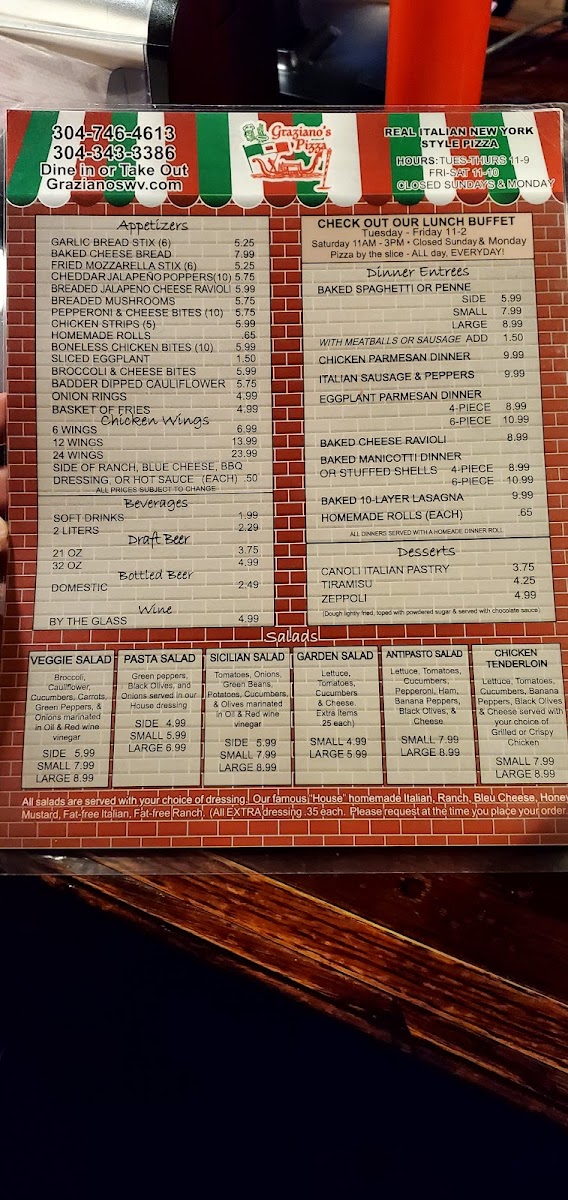 304-746-4613
304-343-3386
Dine in or Take Out
Grazianoswv.com
Graziano's
Pizza
REAL ITALIAN NEW YORK
STYLE PIZZA
HOURS: TUES-THURS 11-9
FRI-SAT 11-10
CLOSED SUNDAYS & MONDAY
Appetizers
GARLIC BREAD STIX (6) 5.25
BAKED CHEESE BREAD 7.99
FRIED MOZZARELLA STIX (6) 5.25
CHEDDAR JALAPENO POPPERS(10) 5.75
BREADED JALAPENO CHEESE RAVIOLI 5.99
BREADED MUSHROOMS 5.75
PEPPERONI & CHEESE BITES (10) 5.75
CHICKEN STRIPS (5) 5.99
HOMEMADE ROLLS .65
BONELESS CHICKEN BITES (10) 5.99
SLICED EGGPLANT 1.50
BROCCOLI & CHEESE BITES 5.99
BADDER DIPPED CAULIFLOWER 5.75
ONION RINGS 4.99
BASKET OF FRIES 4.99
Chicken Wings
6 WINGS 6.99
12 WINGS 13.99
24 WINGS 23.99
SIDE OF RANCH, BLUE CHEESE, BBQ
DRESSING, OR HOT SAUCE (EACH) .50
ALL PRICES SUBJECT TO CHANGE
Beverages
SOFT DRINKS 1.99
2 LITERS 2.29
Draft Beer
21 OZ 3.75
32 OZ 4.99
Bottled Beer
DOMESTIC 2.49
Wine
BY THE GLASS 4.99
CHECK OUT OUR LUNCH BUFFET
Tuesday - Friday 11-2
Saturday 11AM - 3PM • Closed Sunday & Monday
Pizza by the slice - ALL day, EVERYDAY!
Dinner Entrées
BAKED SPAGHETTI OR PENNE
SIDE 5.99
SMALL 7.99
LARGE 8.99
WITH MEATBALLS OR SAUSAGE ADD 1.50
CHICKEN PARMESAN DINNER 9.99
ITALIAN SAUSAGE & PEPPERS 9.99
EGGPLANT PARMESAN DINNER
4-PIECE 8.99
6-PIECE 10.99
BAKED CHEESE RAVIOLI 8.99
BAKED MANICOTTI DINNER
OR STUFFED SHELLS 4-PIECE 8.99
6-PIECE 10.99
BAKED 10-LAYER LASAGNA 9.99
HOMEMADE ROLLS (EACH) .65
ALL DINNERS SERVED WITH A HOMEADE DINNER ROLL
Desserts
CANOLI ITALIAN PASTRY 3.75
TIRAMISU 4.25
ZEPPOLI 4.99
(Dough lightly fried, toped with powdered sugar & served with chocolate sauce)
Salads
VEGGIE SALAD
Broccoli,
Cauliflower,
Cucumbers, Carrots,
Green Peppers, &
Onions marinated
in Oil & Red wine
vinegar
SIDE 5.99
SMALL 7.99
LARGE 8.99
PASTA SALAD
Green peppers,
Black Olives, and
Onions served in our
House dressing
SIDE 4.99
SMALL 5.99
LARGE 6.99
SICILIAN SALAD
Tomatoes, Onions,
Green Beans,
Potatoes, Cucumbers,
& Olives marinated
in Oil & Red wine
vinegar
SIDE 5.99
SMALL 7.99
LARGE 8.99
GARDEN SALAD
Lettuce,
Tomatoes,
Cucumbers
& Cheese.
Extra Items
25 each)
SMALL 4.99
LARGE 5.99
ANTIPASTO SALAD
Lettuce, Tomatoes,
Cucumbers,
Pepperoni, Ham,
Banana Peppers,
Black Olives, &
Cheese
SMALL 7.99
LARGE 8.99
CHICKEN
TENDERLOIN
Lettuce, Tomatoes,
Cucumbers, Banana
Peppers, Black Olives
& Cheese served with
your choice of
Grilled or Crispy
Chicken
SMALL 7.99
LARGE 8.99
All salads are served with your choice of dressing. Our famous "House" homemade Italian, Ranch, Bleu Cheese, Honey
Mustard, Fat-free Italian, Fat-free Ranch, (All EXTRA dressing .35 each. Please request at the time you place your order.